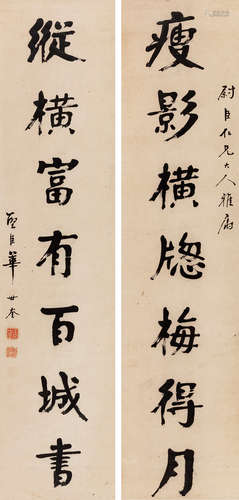 尉臣仁兄大人雅屬
瘦影橫牕梅得月
縱橫富有百城書
弼臣華世奎